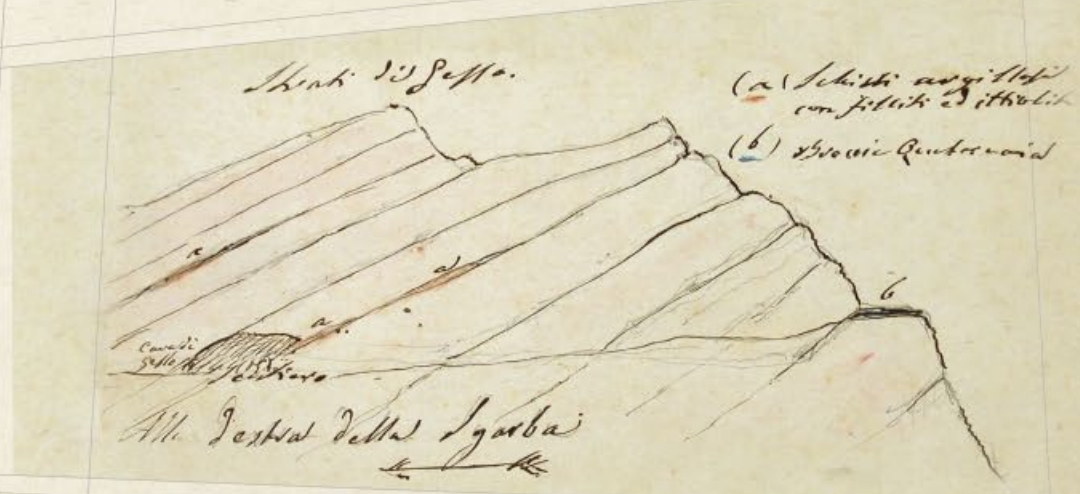 Strati di Gesso.
(a) Schisti argillosi
con filliti ed ittioliti
(b) Breccie Quaternaria
a
a
a
b
Cava di
Gesso
Sentiero
Alla destra della Sgarba